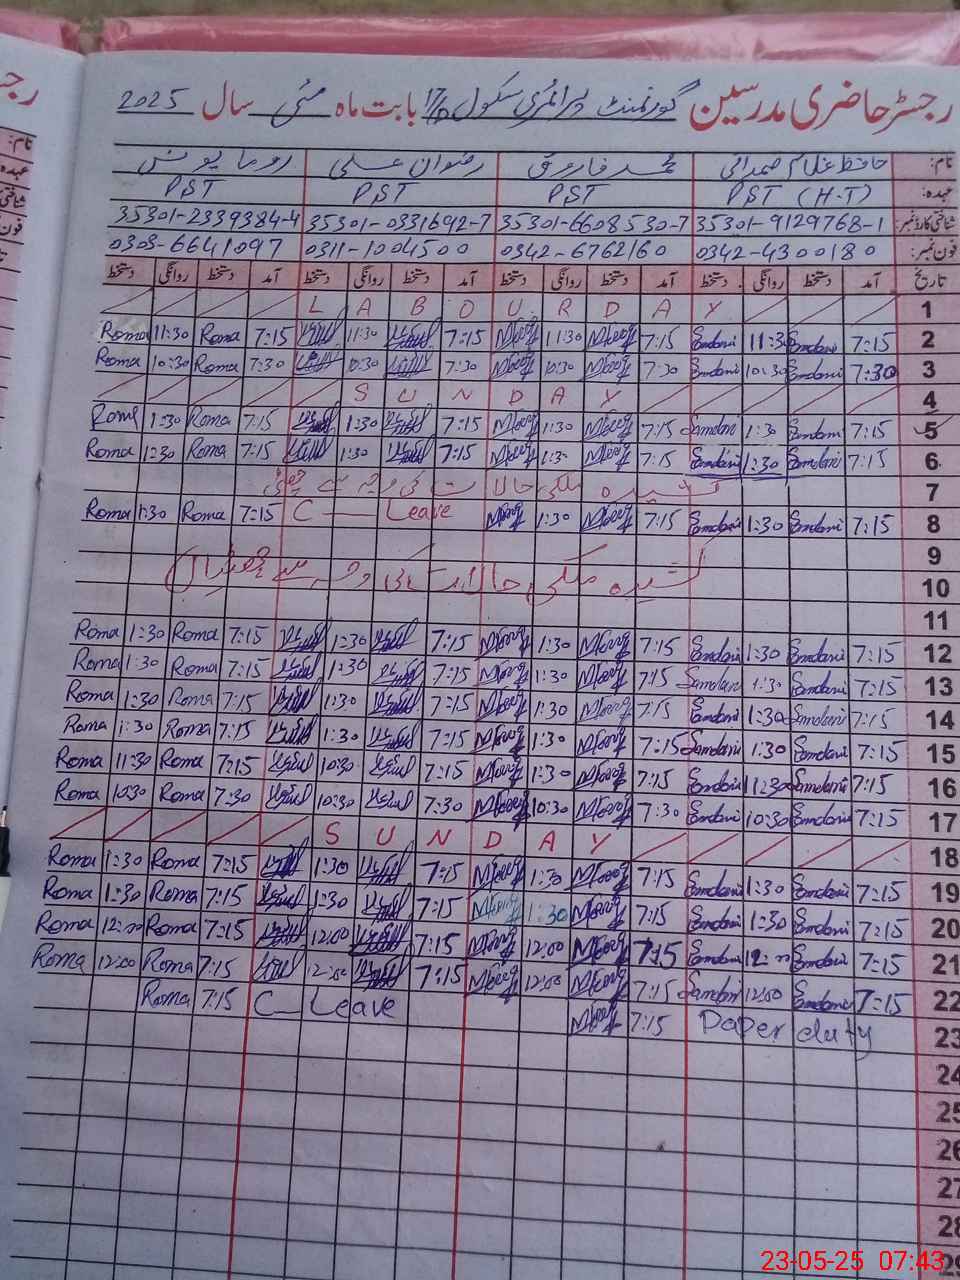 رجسٹر حاضری مدرسین گورنمنٹ پرائمری سکول 17/D بابت ماہ مئی سال 2025
نام: حافظ غلام صمدانی محمد فاروق رضوان علی روما یونس
عہدہ: PST (H.T) PST PST PST
شناختی کارڈ نمبر: 35301-9129768-1 35301-6608530-7 35301-0331692-7 35301-2339384-4
فون نمبر: 0342-4300180 0342-6762160 0311-1004500 0303-6641097
تاریخ آمد دستخط روانگی دستخط آمد دستخط روانگی دستخط آمد دستخط روانگی دستخط آمد دستخط روانگی دستخط
L A B O U R D A Y 1
Roma 11:30 Roma 7:15 11:30 7:15 11:30 7:15 Samdani 11:30 Samdani 7:15 2
Roma 10:30 Roma 7:30 10:30 7:30 10:30 7:30 Samdani 10:30 Samdani 7:30 3
S U N D A Y 4
Roma 1:30 Roma 7:15 1:30 7:15 1:30 7:15 Samdani 1:30 Samdani 7:15 5
Roma 1:30 Roma 7:15 1:30 7:15 1:30 7:15 Samdani 1:30 Samdani 7:15 6
کشیدہ ملکی حالات کی وجہ سے چھٹی 7
Roma 1:30 Roma 7:15 C Leave 1:30 7:15 Samdani 1:30 Samdani 7:15 8
9
کشیدہ ملکی حالات کی وجہ سے چھٹیاں 10
11
Roma 1:30 Roma 7:15 1:30 7:15 1:30 7:15 Samdani 1:30 Samdani 7:15 12
Roma 1:30 Roma 7:15 1:30 7:15 1:30 7:15 Samdani 1:30 Samdani 7:15 13
Roma 1:30 Roma 7:15 1:30 7:15 1:30 7:15 Samdani 1:30 Samdani 7:15 14
Roma 1:30 Roma 7:15 1:30 7:15 1:30 7:15 Samdani 1:30 Samdani 7:15 15
Roma 11:30 Roma 7:15 10:30 7:15 1:30 7:15 Samdani 11:30 Samdani 7:15 16
Roma 10:30 Roma 7:30 10:30 7:30 10:30 7:30 Samdani 10:30 Samdani 7:15 17
S U N D A Y 18
Roma 1:30 Roma 7:15 1:30 7:15 1:30 7:15 Samdani 1:30 Samdani 7:15 19
Roma 1:30 Roma 7:15 1:30 7:15 1:30 7:15 Samdani 1:30 Samdani 7:15 20
Roma 12:00 Roma 7:15 12:00 7:15 12:00 7:15 Samdani 12:00 Samdani 7:15 21
Roma 12:00 Roma 7:15 12:00 7:15 12:00 7:15 Samdani 12:00 Samdani 7:15 22
Roma 7:15 C Leave 7:15 Paper duty 23
24
25
26
27
28
29
23-05-25 07:43